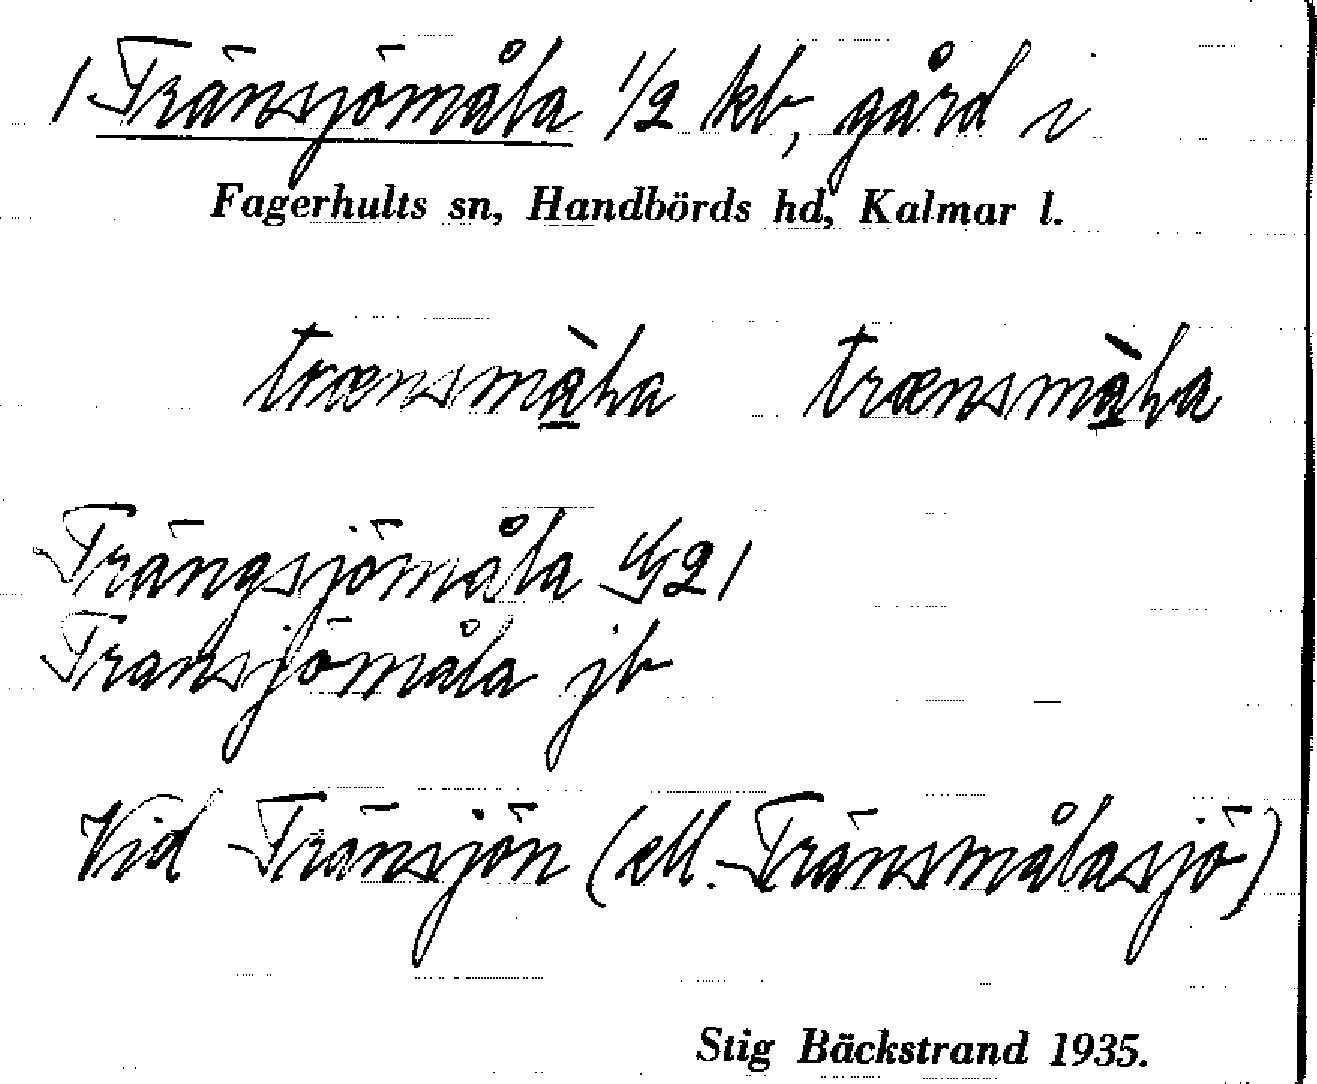 1 Tränsjömåla 1/2 kb, gård i
Fagerhults sn, Handbörds hd, Kalmar l.
trænsmàla trænsmàla
Trängsjömåla 21
Transjömåla jb
Vid Tränsjön (ell. Tränsmålasjö)
Stig Bäckstrand 1935.